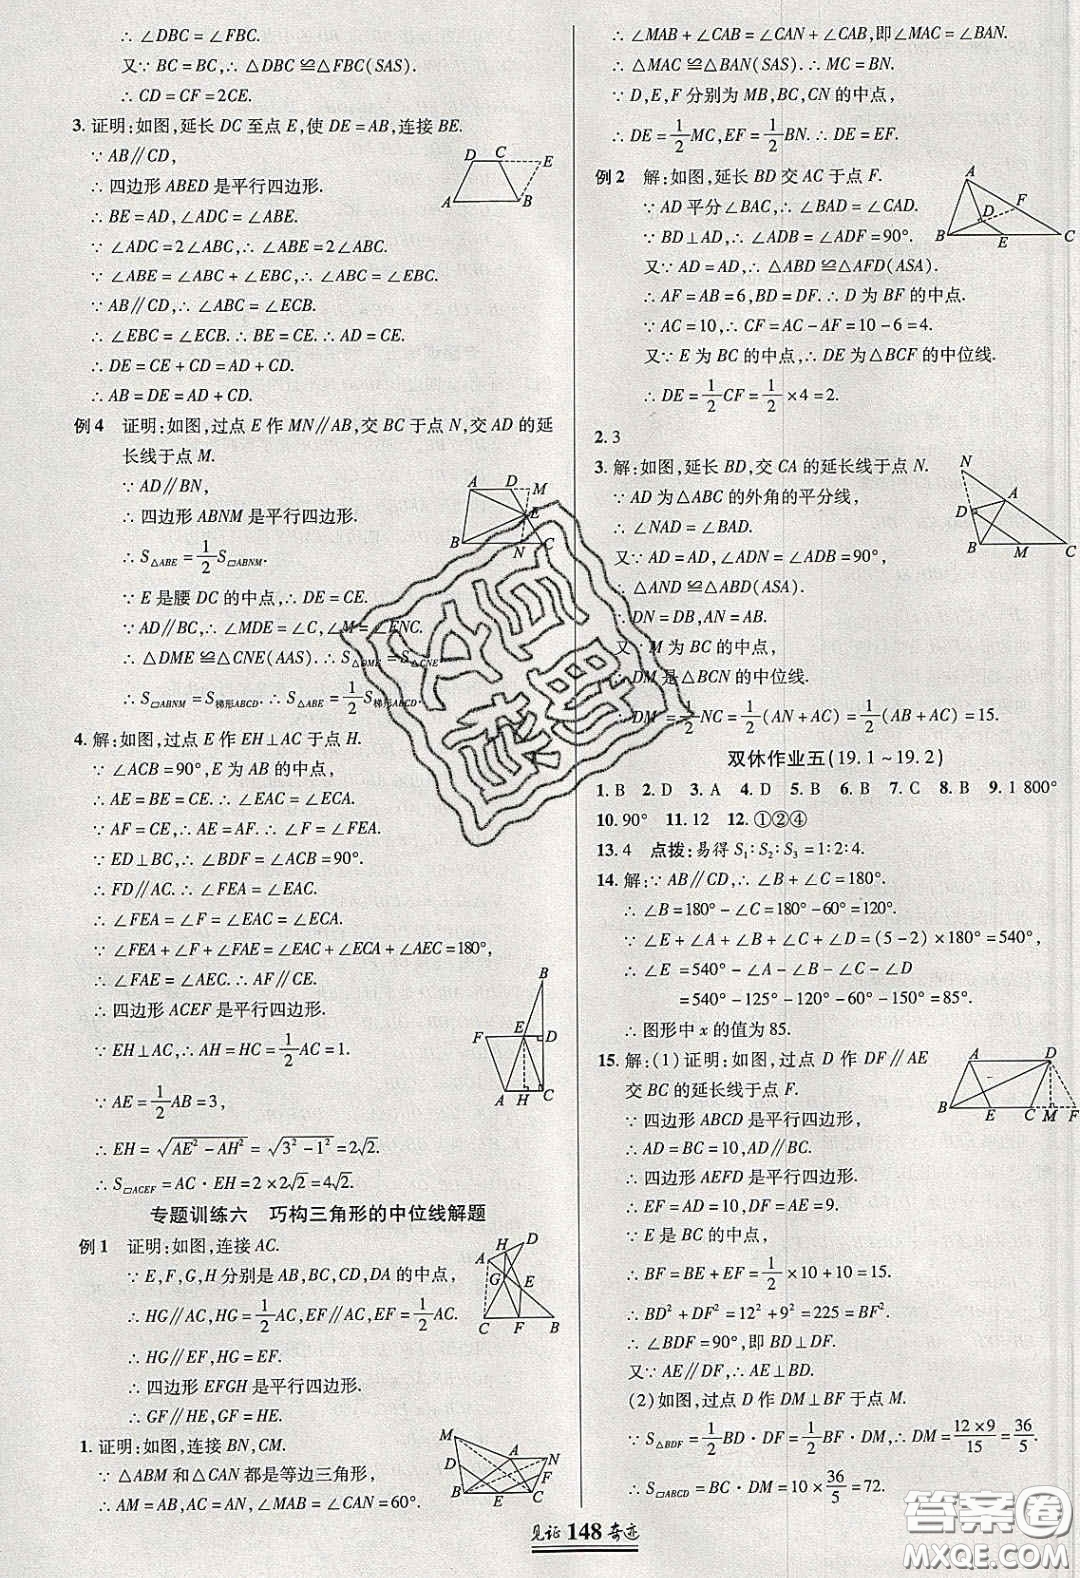 ∴ ∠DBC = ∠FBC.
又∵ BC = BC,∴ △DBC ≌ △FBC(SAS).
∴ CD = CF = 2CE.
3. 证明:如图,延长 DC 至点 E,使 DE = AB,连接 BE.
∵ AB∥CD,
∴ 四边形 ABED 是平行四边形.
∴ BE = AD,∠ADC = ∠ABE.
∵ ∠ADC = 2∠ABC,∴ ∠ABE = 2∠ABC.
∵ ∠ABE = ∠ABC + ∠EBC,∴ ∠ABC = ∠EBC.
∵ AB∥CD,∴ ∠ABC = ∠ECB.
∴ ∠EBC = ∠ECB. ∴ BE = CE. ∴ AD = CE.
∴ DE = CE + CD = AD + CD.
∴ AB = DE = AD + CD.
D C E
A B
例 4 证明:如图,过点 E 作 MN∥AB,交 BC 于点 N,交 AD 的延
长线于点 M.
∵ AD∥BN,
∴ 四边形 ABNM 是平行四边形.
∴ S△ABE = 1/2 S▱ABNM.
∵ E 是腰 DC 的中点,∴ DE = CE.
∵ AD∥BC,∴ ∠MDE = ∠C,∠M = ∠ENC.
∴ △DME ≌ △CNE(AAS). ∴ S△DME = S△CNE.
∴ S▱ABNM = S梯形ABCD. ∴ S△ABE = 1/2 S梯形ABCD.
A D M
E
B N C
4. 解:如图,过点 E 作 EH⊥AC 于点 H.
∵ ∠ACB = 90°,E 为 AB 的中点,
∴ AE = BE = CE.
∵ AF = CE,∴ AF = AE. ∴ ∠F = ∠FEA.
∵ ED⊥BC,∴ ∠BDF = ∠ACB = 90°.
∴ FD∥AC. ∴ ∠FEA = ∠EAC.
∴ ∠FEA = ∠F = ∠EAC = ∠ECA.
∵ ∠FEA + ∠F + ∠FAE = ∠EAC + ∠ECA + ∠AEC = 180°,
∴ ∠FAE = ∠AEC. ∴ AF∥CE.
∴ 四边形 ACEF 是平行四边形.
∵ EH⊥AC,∴ AH = CH = 1/2 AC = 1.
∵ AE = 1/2 AB = 3,
∴ EH = √(AE² − AH²) = √(3² − 1²) = 2√2.
∴ S▱ACEF = AC · EH = 2 × 2√2 = 4√2.
B
F E D
A H C
专题训练六 巧构三角形的中位线解题
例 1 证明:如图,连接 AC.
∵ E,F,G,H 分别是 AB,BC,CD,DA 的中点,
∴ HG∥AC,HG = 1/2 AC,EF∥AC,EF = 1/2 AC.
∴ HG∥EF,HG = EF.
∴ 四边形 EFGH 是平行四边形.
∴ GF∥HE,GF = HE.
A H D
G E
C F B
1. 证明:如图,连接 BN,CM.
∵ △ABM 和 △CAN 都是等边三角形,
∴ AM = AB,AC = AN,∠MAB = ∠CAN = 60°.
M
A N
D F
B E C
∴ ∠MAB + ∠CAB = ∠CAN + ∠CAB,即∠MAC = ∠BAN.
∴ △MAC ≌ △BAN(SAS). ∴ MC = BN.
∵ D,E,F 分别为 MB,BC,CN 的中点,
∴ DE = 1/2 MC,EF = 1/2 BN. ∴ DE = EF.
例 2 解:如图,延长 BD 交 AC 于点 F.
∵ AD 平分∠BAC,∴ ∠BAD = ∠CAD.
∵ BD⊥AD,∴ ∠ADB = ∠ADF = 90°.
又∵ AD = AD,∴ △ABD ≌ △AFD(ASA).
∴ AF = AB = 6,BD = FD. ∴ D 为 BF 的中点.
∵ AC = 10,∴ CF = AC − AF = 10 − 6 = 4.
又∵ E 为 BC 的中点,∴ DE 为 △BCF 的中位线.
∴ DE = 1/2 CF = 1/2 × 4 = 2.
A
F
D
B E C
2. 3
3. 解:如图,延长 BD,交 CA 的延长线于点 N.
∵ AD 为 △ABC 的外角的平分线,
∴ ∠NAD = ∠BAD.
又∵ AD = AD,∠ADN = ∠ADB = 90°,
∴ △AND ≌ △ABD(ASA).
∴ DN = DB,AN = AB.
又∵ M 为 BC 的中点,
∴ DM 是 △BCN 的中位线.
∴ DM = 1/2 NC = 1/2 (AN + AC) = 1/2 (AB + AC) = 15.
N
A
D
B M C
双休作业五(19.1 ~ 19.2)
1. B 2. D 3. A 4. D 5. D 6. B 7. C 8. B 9. 1 800°
10. 90° 11. 12 12. ①②④
13. 4 点拨:易得 S₁∶S₂∶S₃ = 1∶2∶4.
14. 解:∵ AB∥CD,∴ ∠B + ∠C = 180°.
∴ ∠B = 180° − ∠C = 180° − 60° = 120°.
∵ ∠E + ∠A + ∠B + ∠C + ∠D = (5 − 2) × 180° = 540°,
∴ ∠E = 540° − ∠A − ∠B − ∠C − ∠D
= 540° − 125° − 120° − 60° − 150° = 85°.
∴ 图形中 x 的值为 85.
15. 解:(1) 证明:如图,过点 D 作 DF∥AE
交 BC 的延长线于点 F.
∵ 四边形 ABCD 是平行四边形,
∴ AD = BC = 10,AD∥BC.
∴ 四边形 AEFD 是平行四边形.
∴ DF = AE = 9,EF = AD = 10.
∵ E 是 BC 的中点,
∴ BF = BE + EF = 1/2 × 10 + 10 = 15.
∴ BD² + DF² = 12² + 9² = 225 = BF².
∴ ∠BDF = 90°,即 BD⊥DF.
又∵ AE∥DF,∴ AE⊥BD.
(2) 如图,过点 D 作 DM⊥BF 于点 M.
∵ S△BDF = 1/2 BD · DF = 1/2 BF · DM,∴ DM = 12 × 9/15 = 36/5.
∴ S▱ABCD = BC · DM = 10 × 36/5 = 72.
A D
B E C M F
见证 148 奇迹
答案圈
MXQE.COM